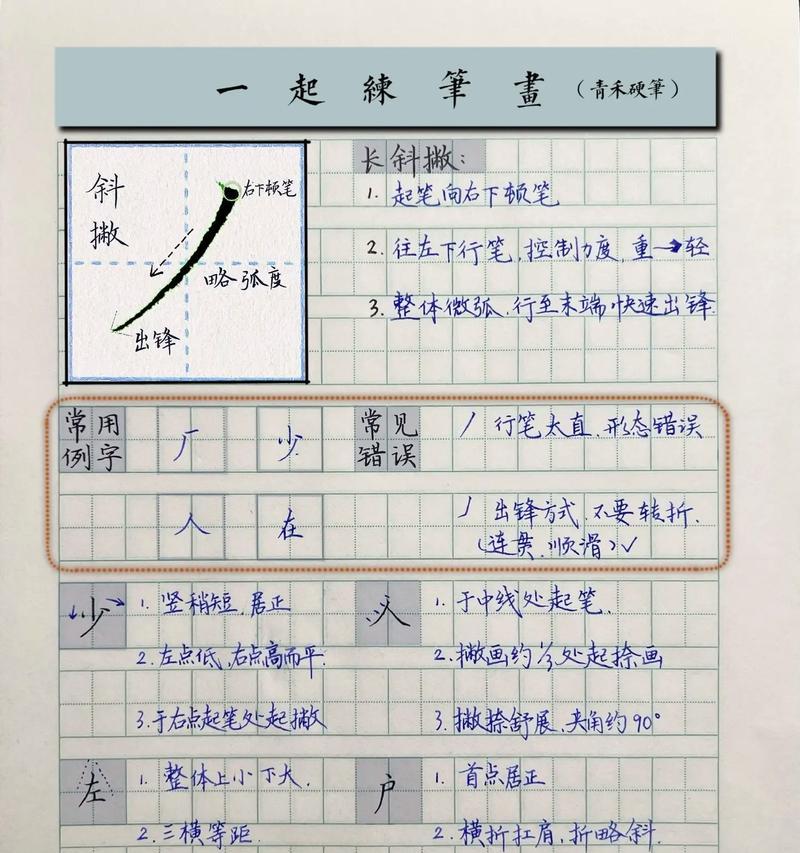 一起練筆畫（青禾硬筆）
斜撇
右下顿笔
略弧度
出锋
长斜撇：
1. 起笔向右下顿笔
2. 往左下行笔，控制力度，重→轻
3. 整体微弧，行至末端快速出锋.
常用例字
厂 少
人 在
常见错误
丿 行笔太直、形态错误
丿 出锋方式，不要转折.
（连贯、顺滑）✓
少
1. 竖稍短，居正
2. 左点低，右点高而平.
3. 于右点起笔处起撇
人
1. 于中线处起笔.
2. 撇画约⅓处起捺画
3. 撇捺舒展、夹角约90°
左
1. 整体上小下大.
2. 三横等距.
户
1. 首点居正
2. 横折扛肩，折略斜.